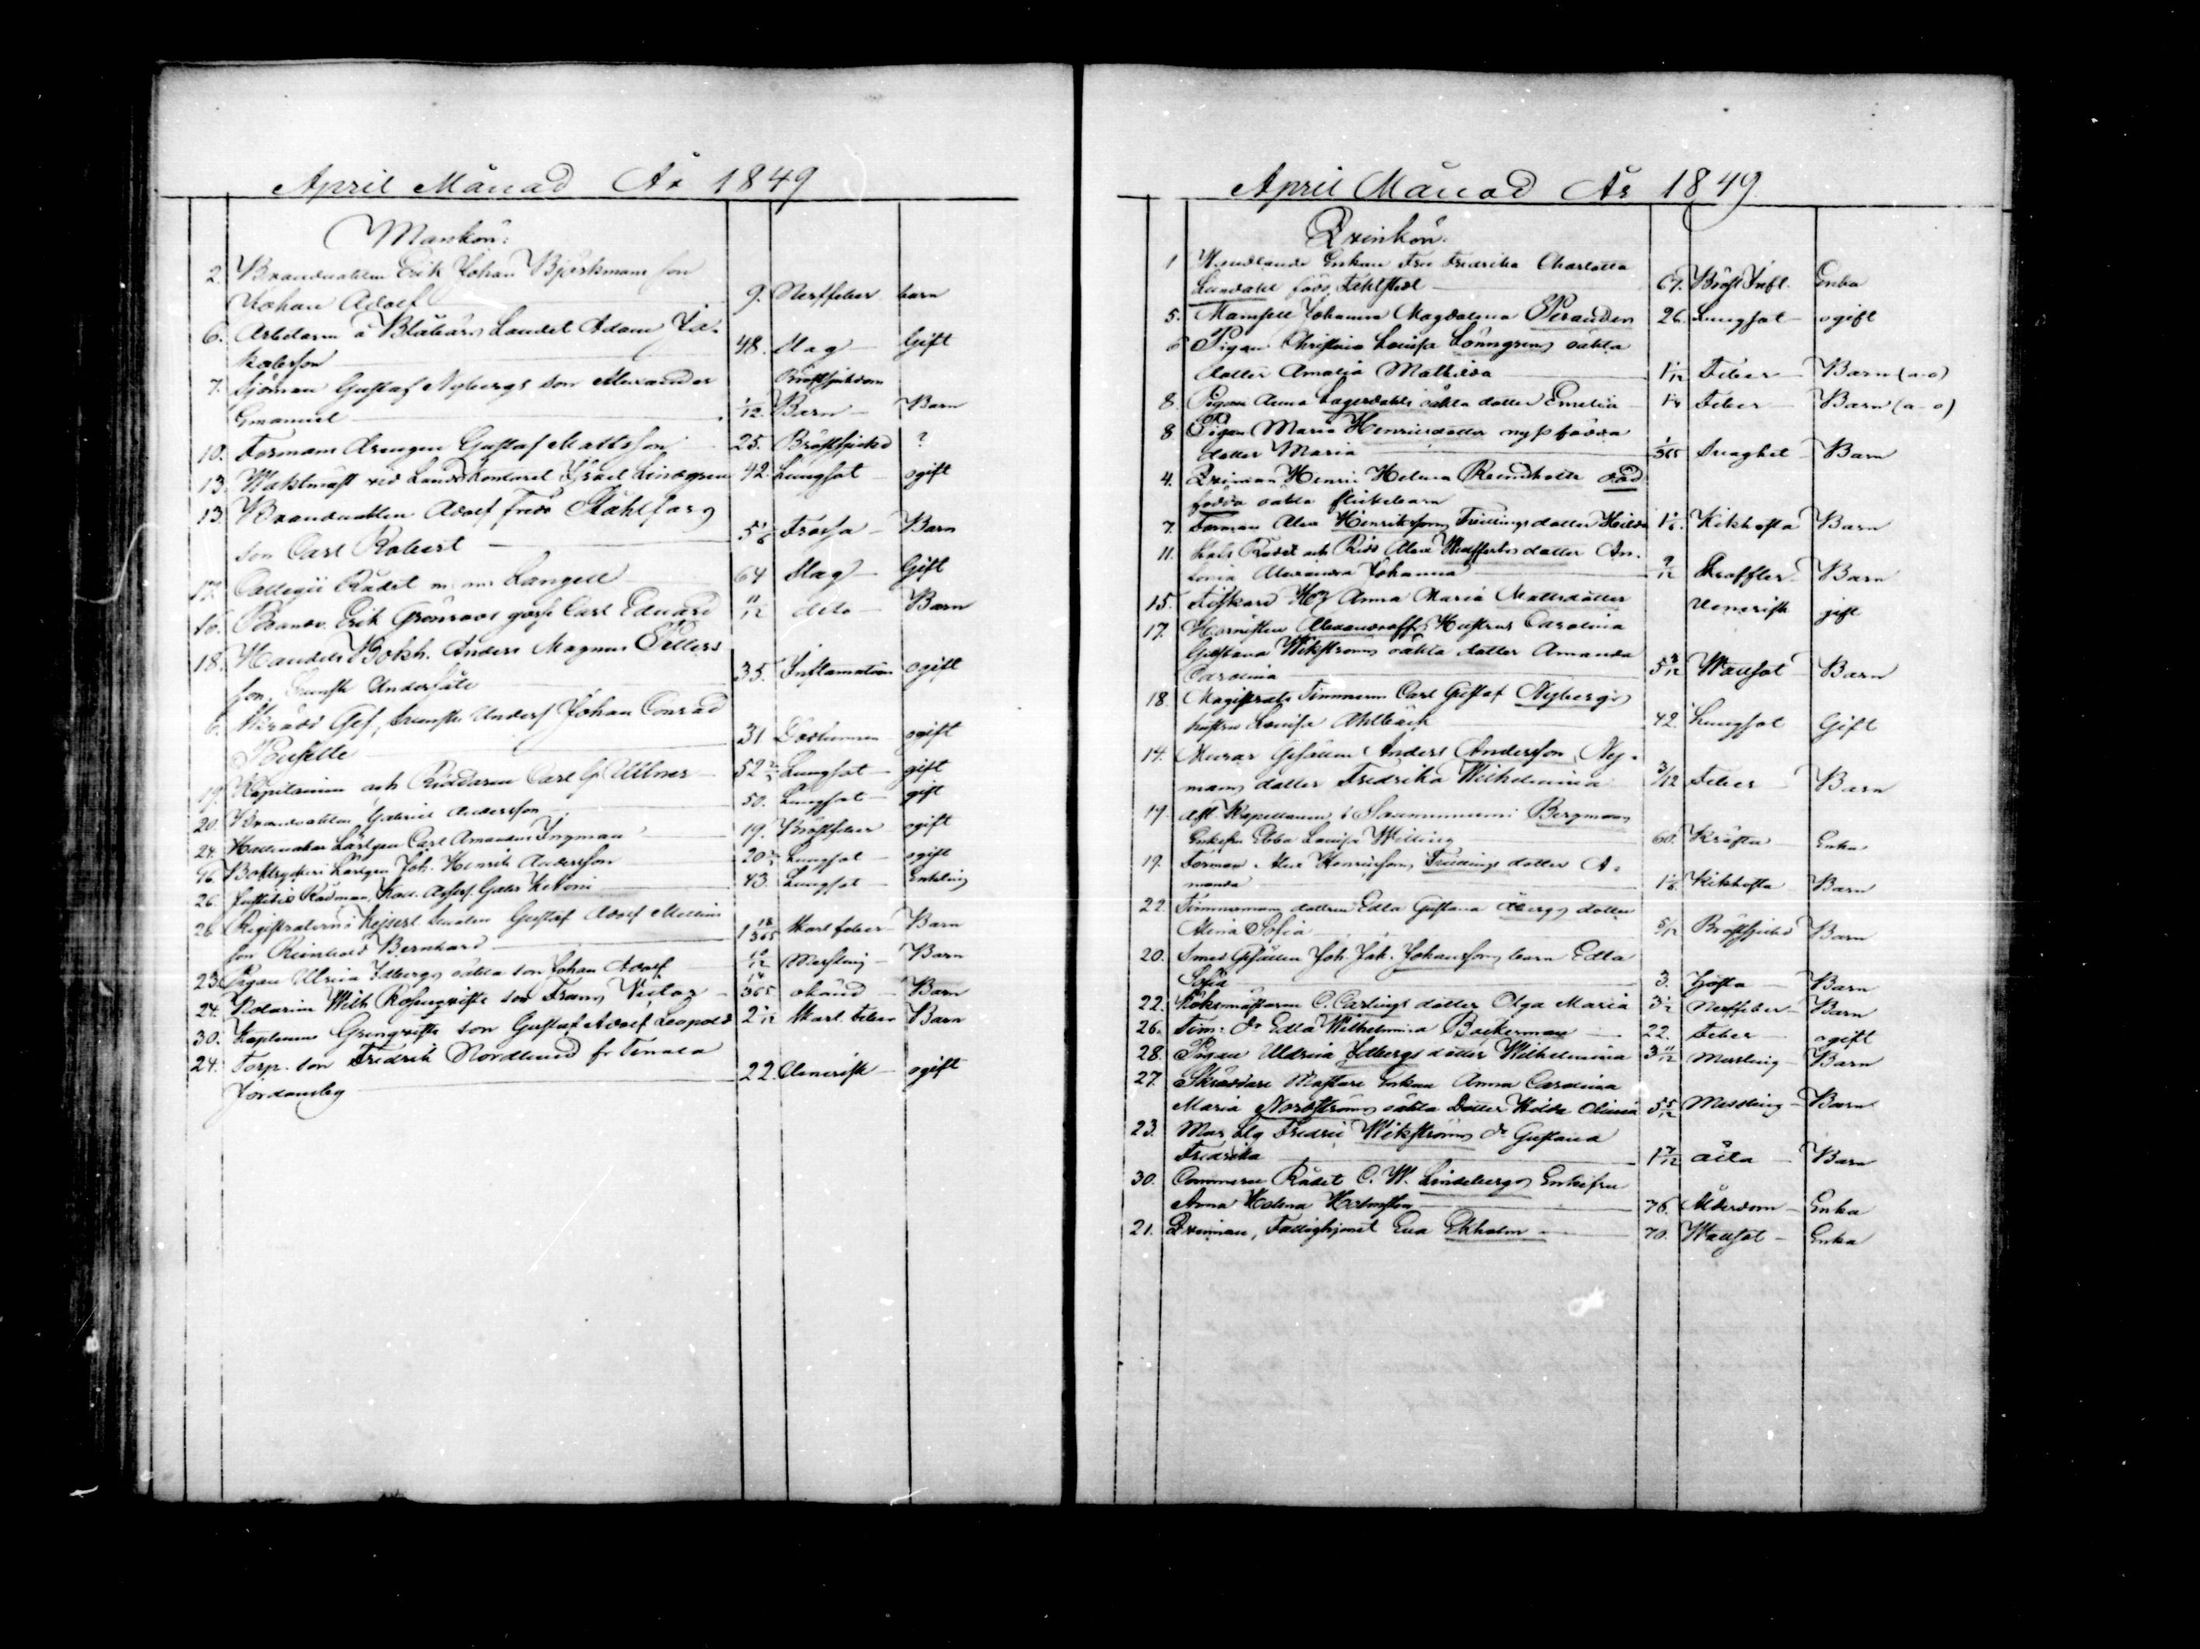 April Månad År 1849
Mankön:
2. Brandvakten Erik Johan Björkmans son
Johan Adolf 9. Nerffeber barn
6. Arbetaren å Blåbärs Landet Adam Ja-
kobsson 48. Slag Gift
7. Sjöman Gustaf Nybergs son Alexander
Emanuel 1/12. Bröstsjukdom Barn Barn
10. Formans drengen Gustaf Mattsson 25. Bröstsjukd ?
13. Waktmäst vid Lands Kontoret Israel Lindgren 42. Lungsot ogift
13. Brandvakten Adolf Fredr Ståhlfars
son Carl Robert 5 1/6 Frossa Barn
17. Collegii Rådet m m Langell 64 Slag Gift
16. Brandv. Erik Grönroos gosse Carl Eduard 11/12 dito Barn
18. Handels Bokh. Anders Magnus Petters
son, Svensk Undersåte 35. Inflamation ogift
6. Gef, Svensk Unders Johan Conrad
31 ogift
19. Kapitainen och Riddaren Carl G. 52 Lungsot gift
20. Brandvakten Gabriel Andersson 50. Lungsot gift
24. Lärlgen Carl Amandus Ingman 19. Bröstfeber ogift
16. Boktryckeri Lärlgen Joh. Henrik Andersson 20 Lungsot ogift
26. Justitie Rådman, Koll. Assess. Gabr 43. Lungsot Enkling
26 Registratorns i Kejserl Senaten Gustaf Adolf Mellins
son Reinhold Bernhard 1 18/365 Skarl feber Barn
23. Pigan Ulrica Idbergs oäkta son Johan Adolf 10/12 Messling Barn
24. Notarien Wilh Rosenqvists son Frans Victor 14/365 okänd Barn
30. Kaptenens Grenqvists son Gustaf Adolf Leopold 2 Skarl. feber Barn
24. Torp. son Fredrik Nordlund fr Tenala
22. Venerisk ogift
April Månad År 1849.
Qvinkön.
1 Enkan Fru Fredrika Charlotta
Lundahl född Fahlstedt 67. Bröst Infl. Enka
5. Mamsell Johanna Magdalena Perander 26. Lungsot ogift
6 Pigan Christina Lovisa Lönngrens oäkta
dotter Amalia Mathilda 1 1/12 Feber Barn (a-o)
8. Pigan Anna Lagerdahls oäkta dotter Emelia 1/4 Feber Barn (a-o)
8 Pigan Maria Henriksdotter nyss födda
dotter Maria 1/365 Svaghet Barn
4. Qvinnan Henri Helena död
födda oäkta flickebarn
7. Forman Alex Henrikssons Tvillings dotter Hilda 1 1/6. Kikhosta Barn
11. Rådet och Ridd Alex dotter An-
tonia Alexandra Johanna 9/12 Barn
15. Anna Maria Mattsdotter Venerisk gift
17. Hornisten Alexandroffs Hustrus Carolina
Gustava Wikströms oäkta dotter Amanda
Carolina 5 Wattsot Barn
18. Magistrats Timmerm Carl Gustaf Nybergs
hustru Lovisa Ahlbäck 42. Lungsot Gift
14. Murar Gesällen Anders Andersson Nej-
mans dotter Fredrika Wilhelmina 3/12 Feber Barn
19. afl. Kapellanen i Sammanmini Bergmans
Enkefru Ebba Lovisa Welling 60. Kräfta Enka
19. Forman Alex Henrikssons Tvillings dotter A-
manda 1 1/6. Kikhosta Barn
22. Timmermans dottren Edla Gustava Åbergs dotter
Alina Sofia 5/12 Bröstsjukd Barn
20. Smeds Gesällen Joh. Jak. Johanssons barn Edla
Sofia 3. Hosta Barn
22. Köksmästaren C. Carlings dotter Olga Maria 3 1/2 Nerffeber Barn
26. Tim: dr Edla Wilhelmina Bäckerman 22. Feber ogift
28. Pigan Uldrica Idbergs dotter Wilhelmina 3 11/12 Messling Barn
27. Skräddare Mästare Enkan Anna Carolina
Maria Nordströms oäkta Dotter Hilda Olivia 5 5/12 Messling Barn
23. Fredric Wikströms dr Gustava
Fredrika 1 7/12 dito Barn
30. Commerce Rådet C. W. Lindebergs Enkefru
Anna Helena 76. Ålderdom Enka
21. Qvinnan, Fattighjonet Eva Ekholm 70. Wattsot Enka